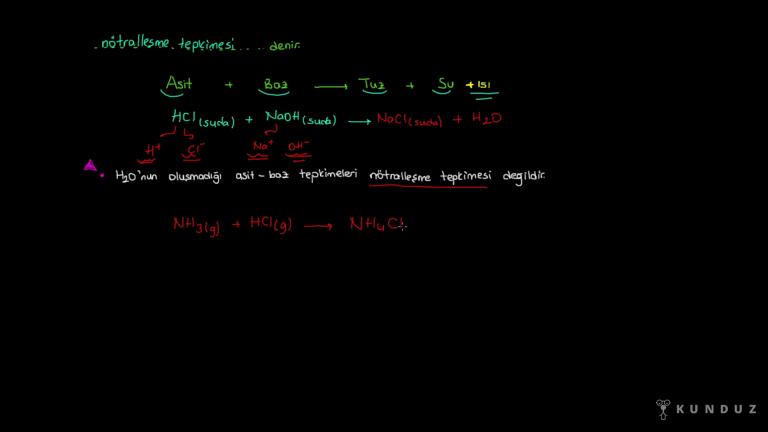 . nötralleşme tepkimesi .... denir.
Asit + Baz → Tuz + Su + ısı
HCl(suda) + NaOH(suda) → NaCl(suda) + H2O
H+ Cl- Na+ OH-
. H2O'nun oluşmadığı asit-baz tepkimeleri nötralleşme tepkimesi değildir.
NH3(g) + HCl(g) → NH4Cl
KUNDUZ